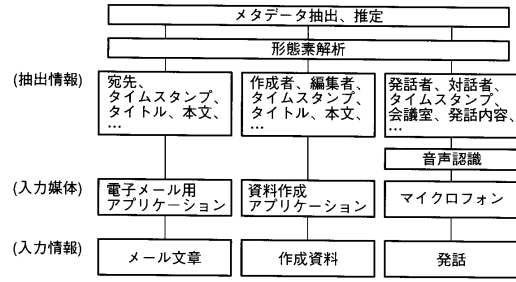 メタデータ抽出、推定
形態素解析
(抽出情報)
宛先、
タイムスタンプ、
タイトル、本文、
…
作成者、編集者、
タイムスタンプ、
タイトル、本文、
…
発話者、対話者、
タイムスタンプ、
会議室、発話内容、
…
音声認識
(入力媒体)
電子メール用
アプリケーション
資料作成
アプリケーション
マイクロフォン
(入力情報)
メール文章
作成資料
発話